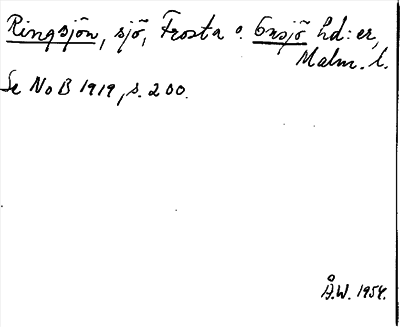 Ringsjön, sjö, Frosta o. Onsjö hd:er,
Malm. l.
Se NoB 1919, s. 200.
Å.W. 1954.